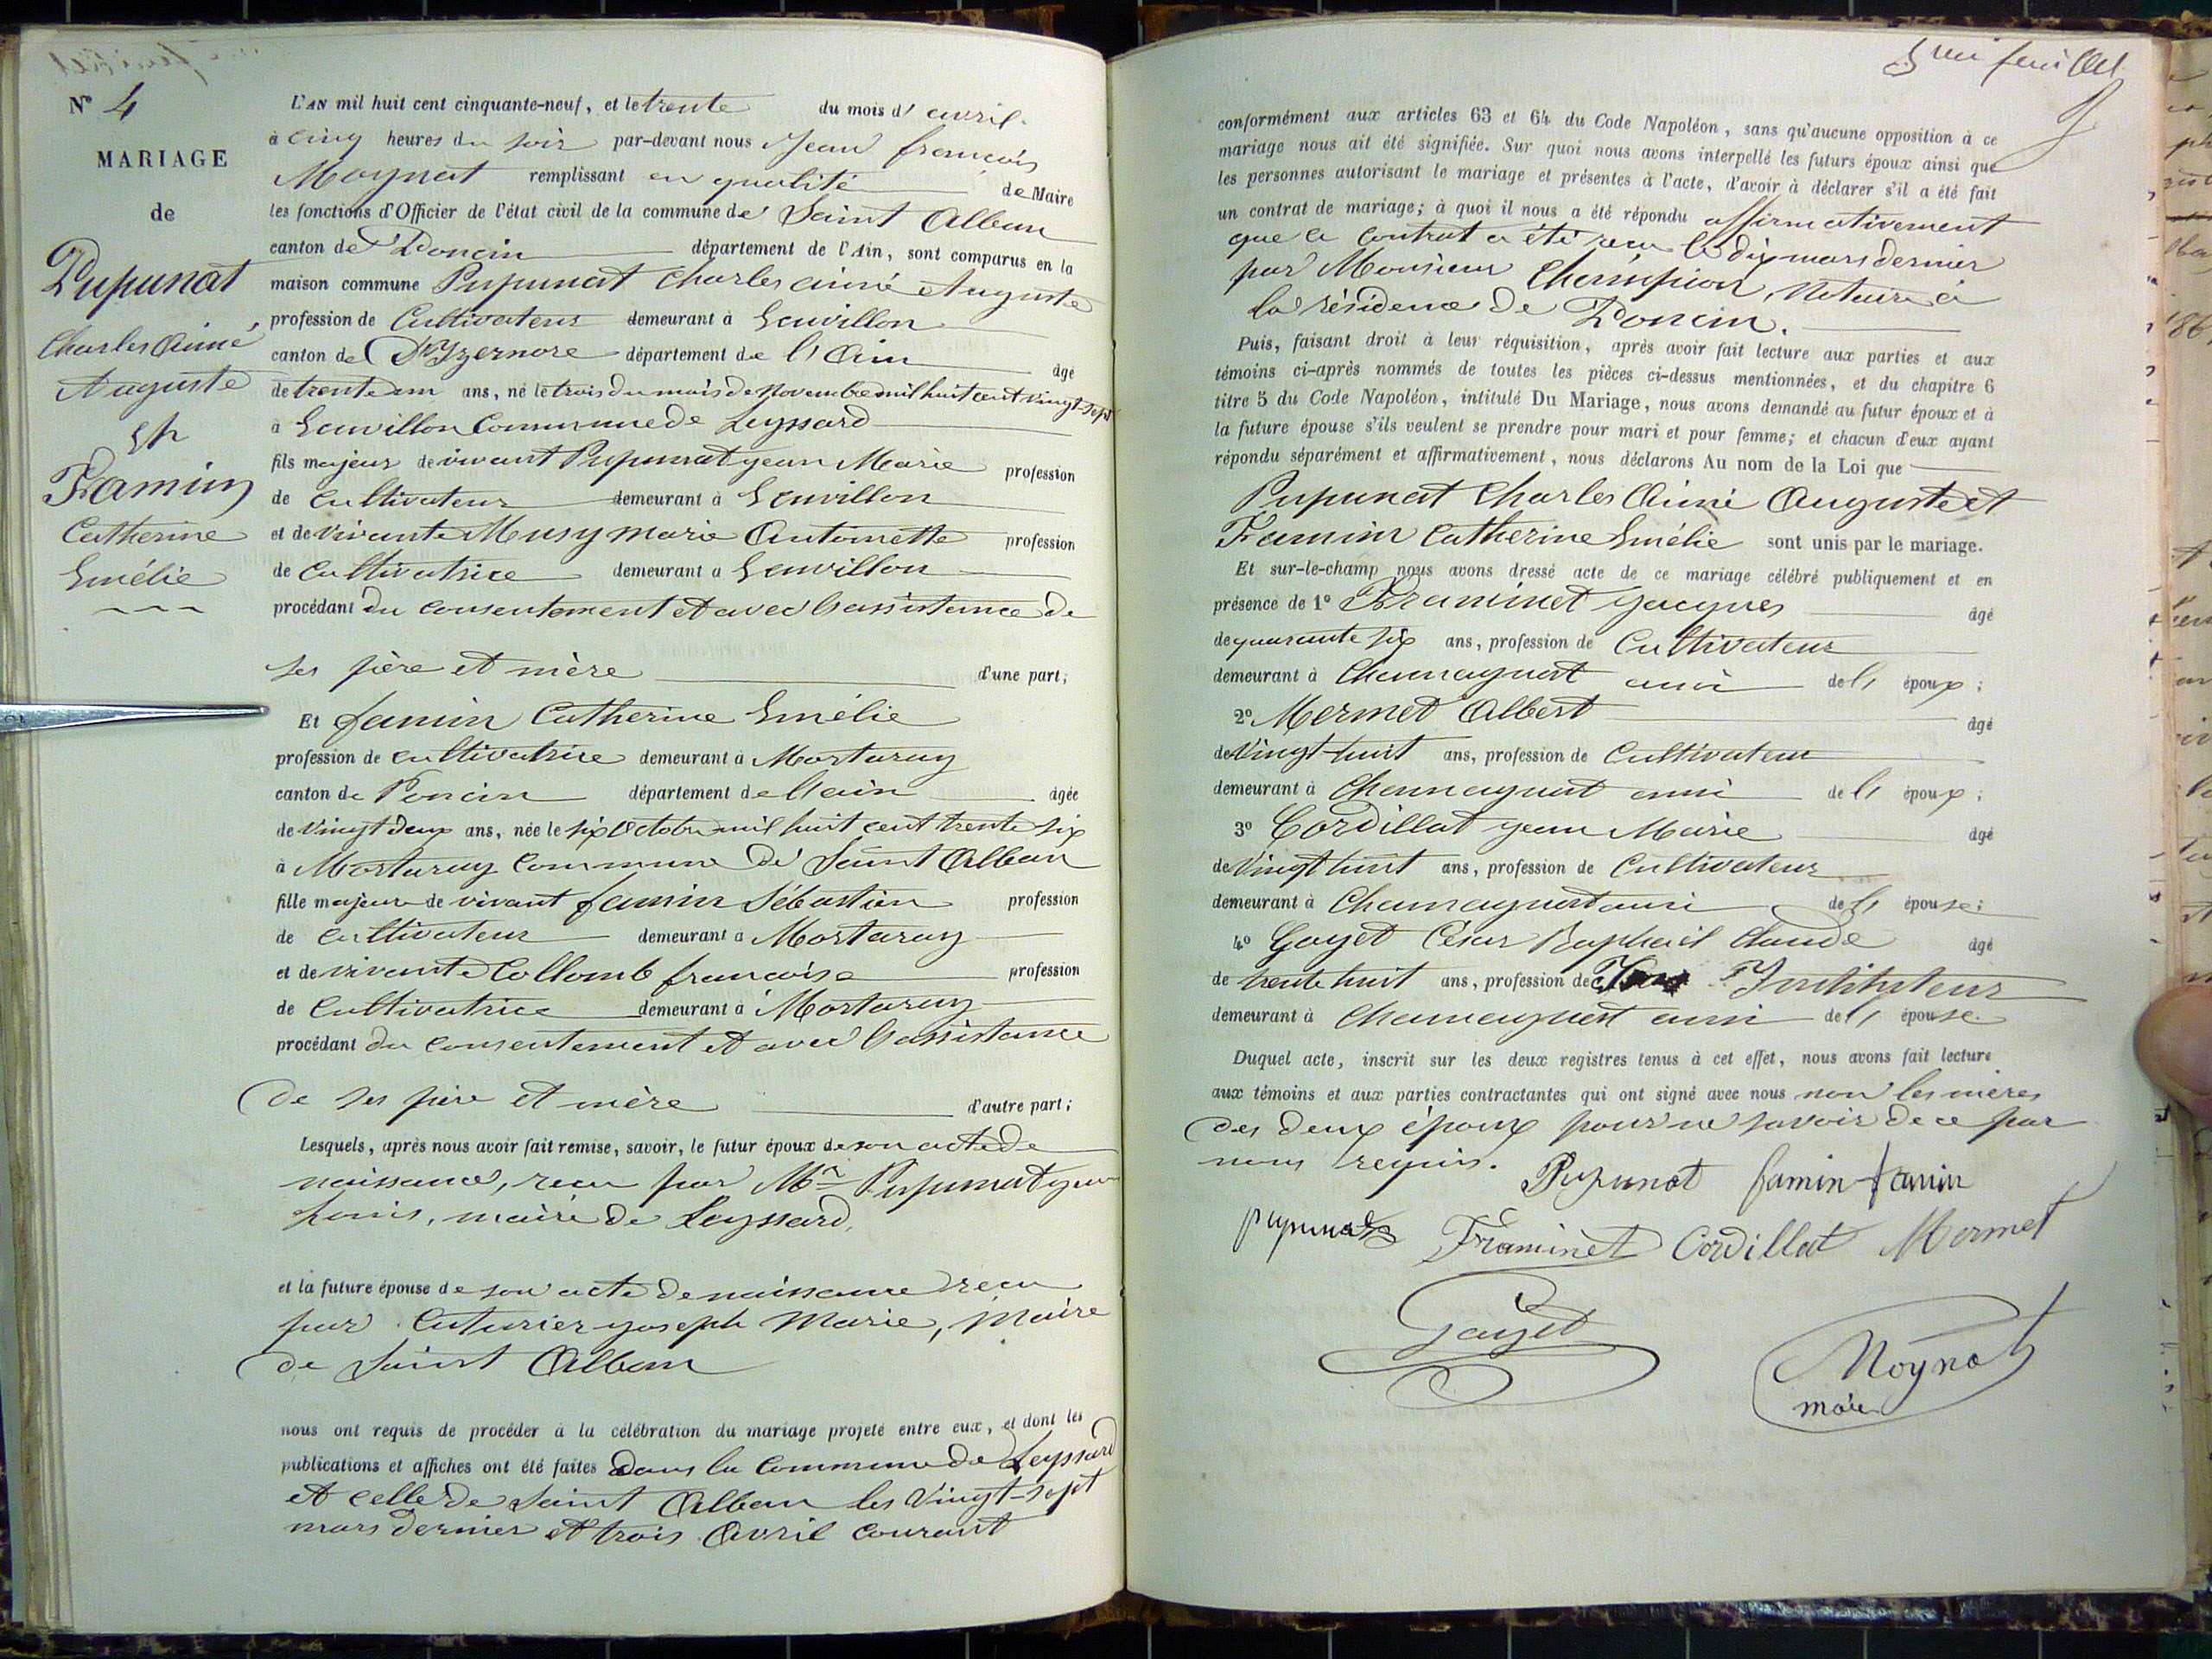 N° 4
MARIAGE
de
Pupunat
Charles Aimé
Auguste
et
Framin
Catherine
Emélie
L'AN mil huit cent cinquante-neuf, et le trente du mois d'avril
à cinq heures du soir par-devant nous Jean françois
Moynat remplissant en qualité de Maire
les fonctions d'Officier de l'état civil de la commune de Saint Alban
canton de Poncin département de l'Ain, sont comparus en la
maison commune Pupunat Charles aimé Auguste
profession de Cultivateur demeurant à Solvillon
canton de D'Yzernore département de l'Ain âgé
de trente un ans, né le trois du mois de Novembre mil huit cent vingt-sept
à commune de Leyssard
fils majeur de vivant Pupunat jean Marie profession
de Cultivateur demeurant à
et de vivante Musy marie Antoinette profession
de Cultivatrice demeurant à
procédant du consentement et avec l'assistance de
ses père et mère d'une part;
Et famin Catherine Emélie
profession de cultivatrice demeurant à Mortaray
canton de Poncin département de l'ain âgée
de vingt deux ans, née le six Octobre mil huit cent trente six
à Mortaray commune de Saint Alban
fille majeure de vivant famin Sébastien profession
de cultivateur demeurant à Mortaray
et de vivante Collomb françoise profession
de Cultivatrice demeurant à Mortaray
procédant du consentement et avec l'assistance
de ses père et mère d'autre part;
Lesquels, après nous avoir fait remise, savoir, le futur époux de son acte de
naissance, reçu par Mr Pupunat jean
maire de Leyssard,
et la future épouse de son acte de naissance reçu
par Cuturier joseph Marie, Maire
de Saint Alban
nous ont requis de procéder à la célébration du mariage projeté entre eux, et dont les
publications et affiches ont été faites dans la commune de Leyssard
et celle de Saint Alban les vingt-sept
mars dernier et trois Avril courant
5me feuillet
conformément aux articles 63 et 64 du Code Napoléon, sans qu'aucune opposition à ce
mariage nous ait été signifiée. Sur quoi nous avons interpellé les futurs époux ainsi que
les personnes autorisant le mariage et présentes à l'acte, d'avoir à déclarer s'il a été fait
un contrat de mariage; à quoi il nous a été répondu affirmativement
que ce contrat a été reçu le dix mars dernier
par Monsieur Champion, Notaire à
la résidence de Poncin.
Puis, faisant droit à leur réquisition, après avoir fait lecture aux parties et aux
témoins ci-après nommés de toutes les pièces ci-dessus mentionnées, et du chapitre 6
titre 5 du Code Napoléon, intitulé Du Mariage, nous avons demandé au futur époux et à
la future épouse s'ils veulent se prendre pour mari et pour femme; et chacun d'eux ayant
répondu séparément et affirmativement, nous déclarons Au nom de la Loi que
Pupunat Charles Aimé Auguste et
Framin Catherine Emélie sont unis par le mariage.
Et sur-le-champ nous avons dressé acte de ce mariage célébré publiquement et en
présence de 1° Framinet Jacques âgé
de quarante six ans, profession de Cultivateur
demeurant à Chamagnat ami de l' époux;
2° Mermet Albert âgé
de Vingt-huit ans, profession de Cultivateur
demeurant à Chamagnat ami de l' époux;
3° Cordillat jean Marie âgé
de Vingt huit ans, profession de Cultivateur
demeurant à Chamagnat ami de l' épouse;
4° Gayet César Raphaël Claude âgé
de trente huit ans, profession de Instituteur
demeurant à Chamagnat ami de l' épouse.
Duquel acte, inscrit sur les deux registres tenus à cet effet, nous avons fait lecture
aux témoins et aux parties contractantes qui ont signé avec nous non les mères
des deux époux pour ne savoir de ce par
nous requis.
Pupunat famin famin
pupunat Framinet Cordillat Mermet
Gayet
Moynat
maire